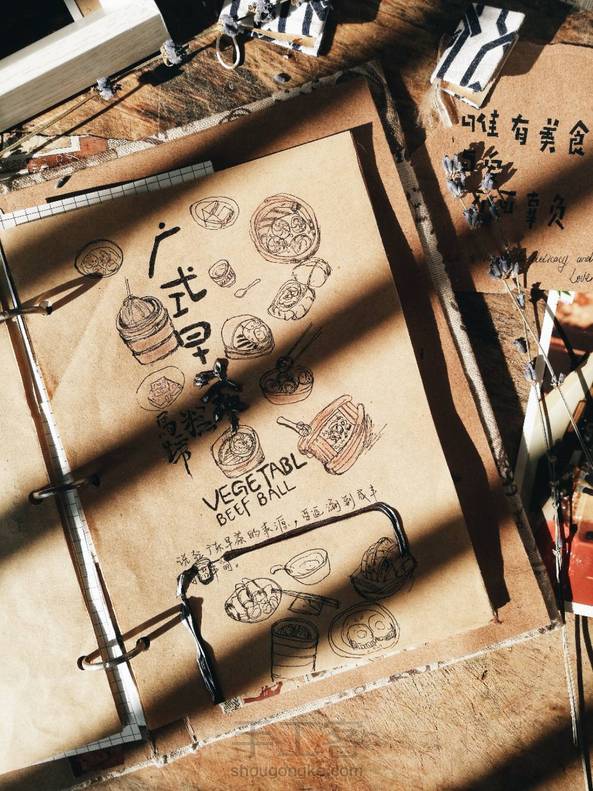 广式早
VEGETABL
BEEF BALL
说起广东早茶的来源，要追溯到咸丰
唯有美食
辜负
delicacy and
Love
手工客
shougongke.com